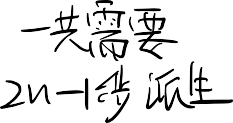 一共需要
2n-1步派生